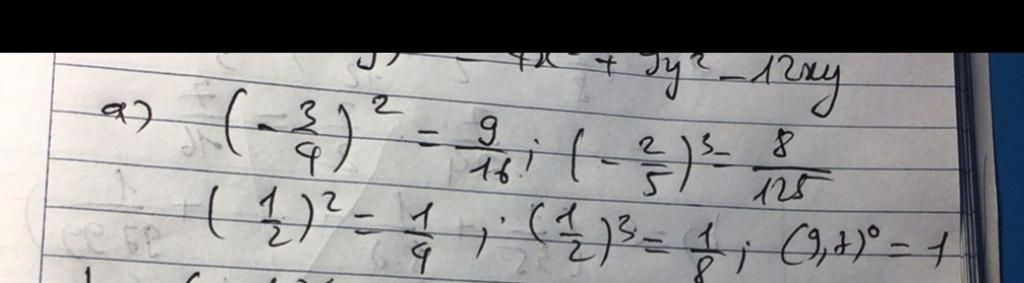 + 9y² - 12xy
a) (-3/4)² = 9/16; (-2/5)³ = 8/125
(1/2)² = 1/4; (1/2)³ = 1/8; (9,7)⁰ = 1